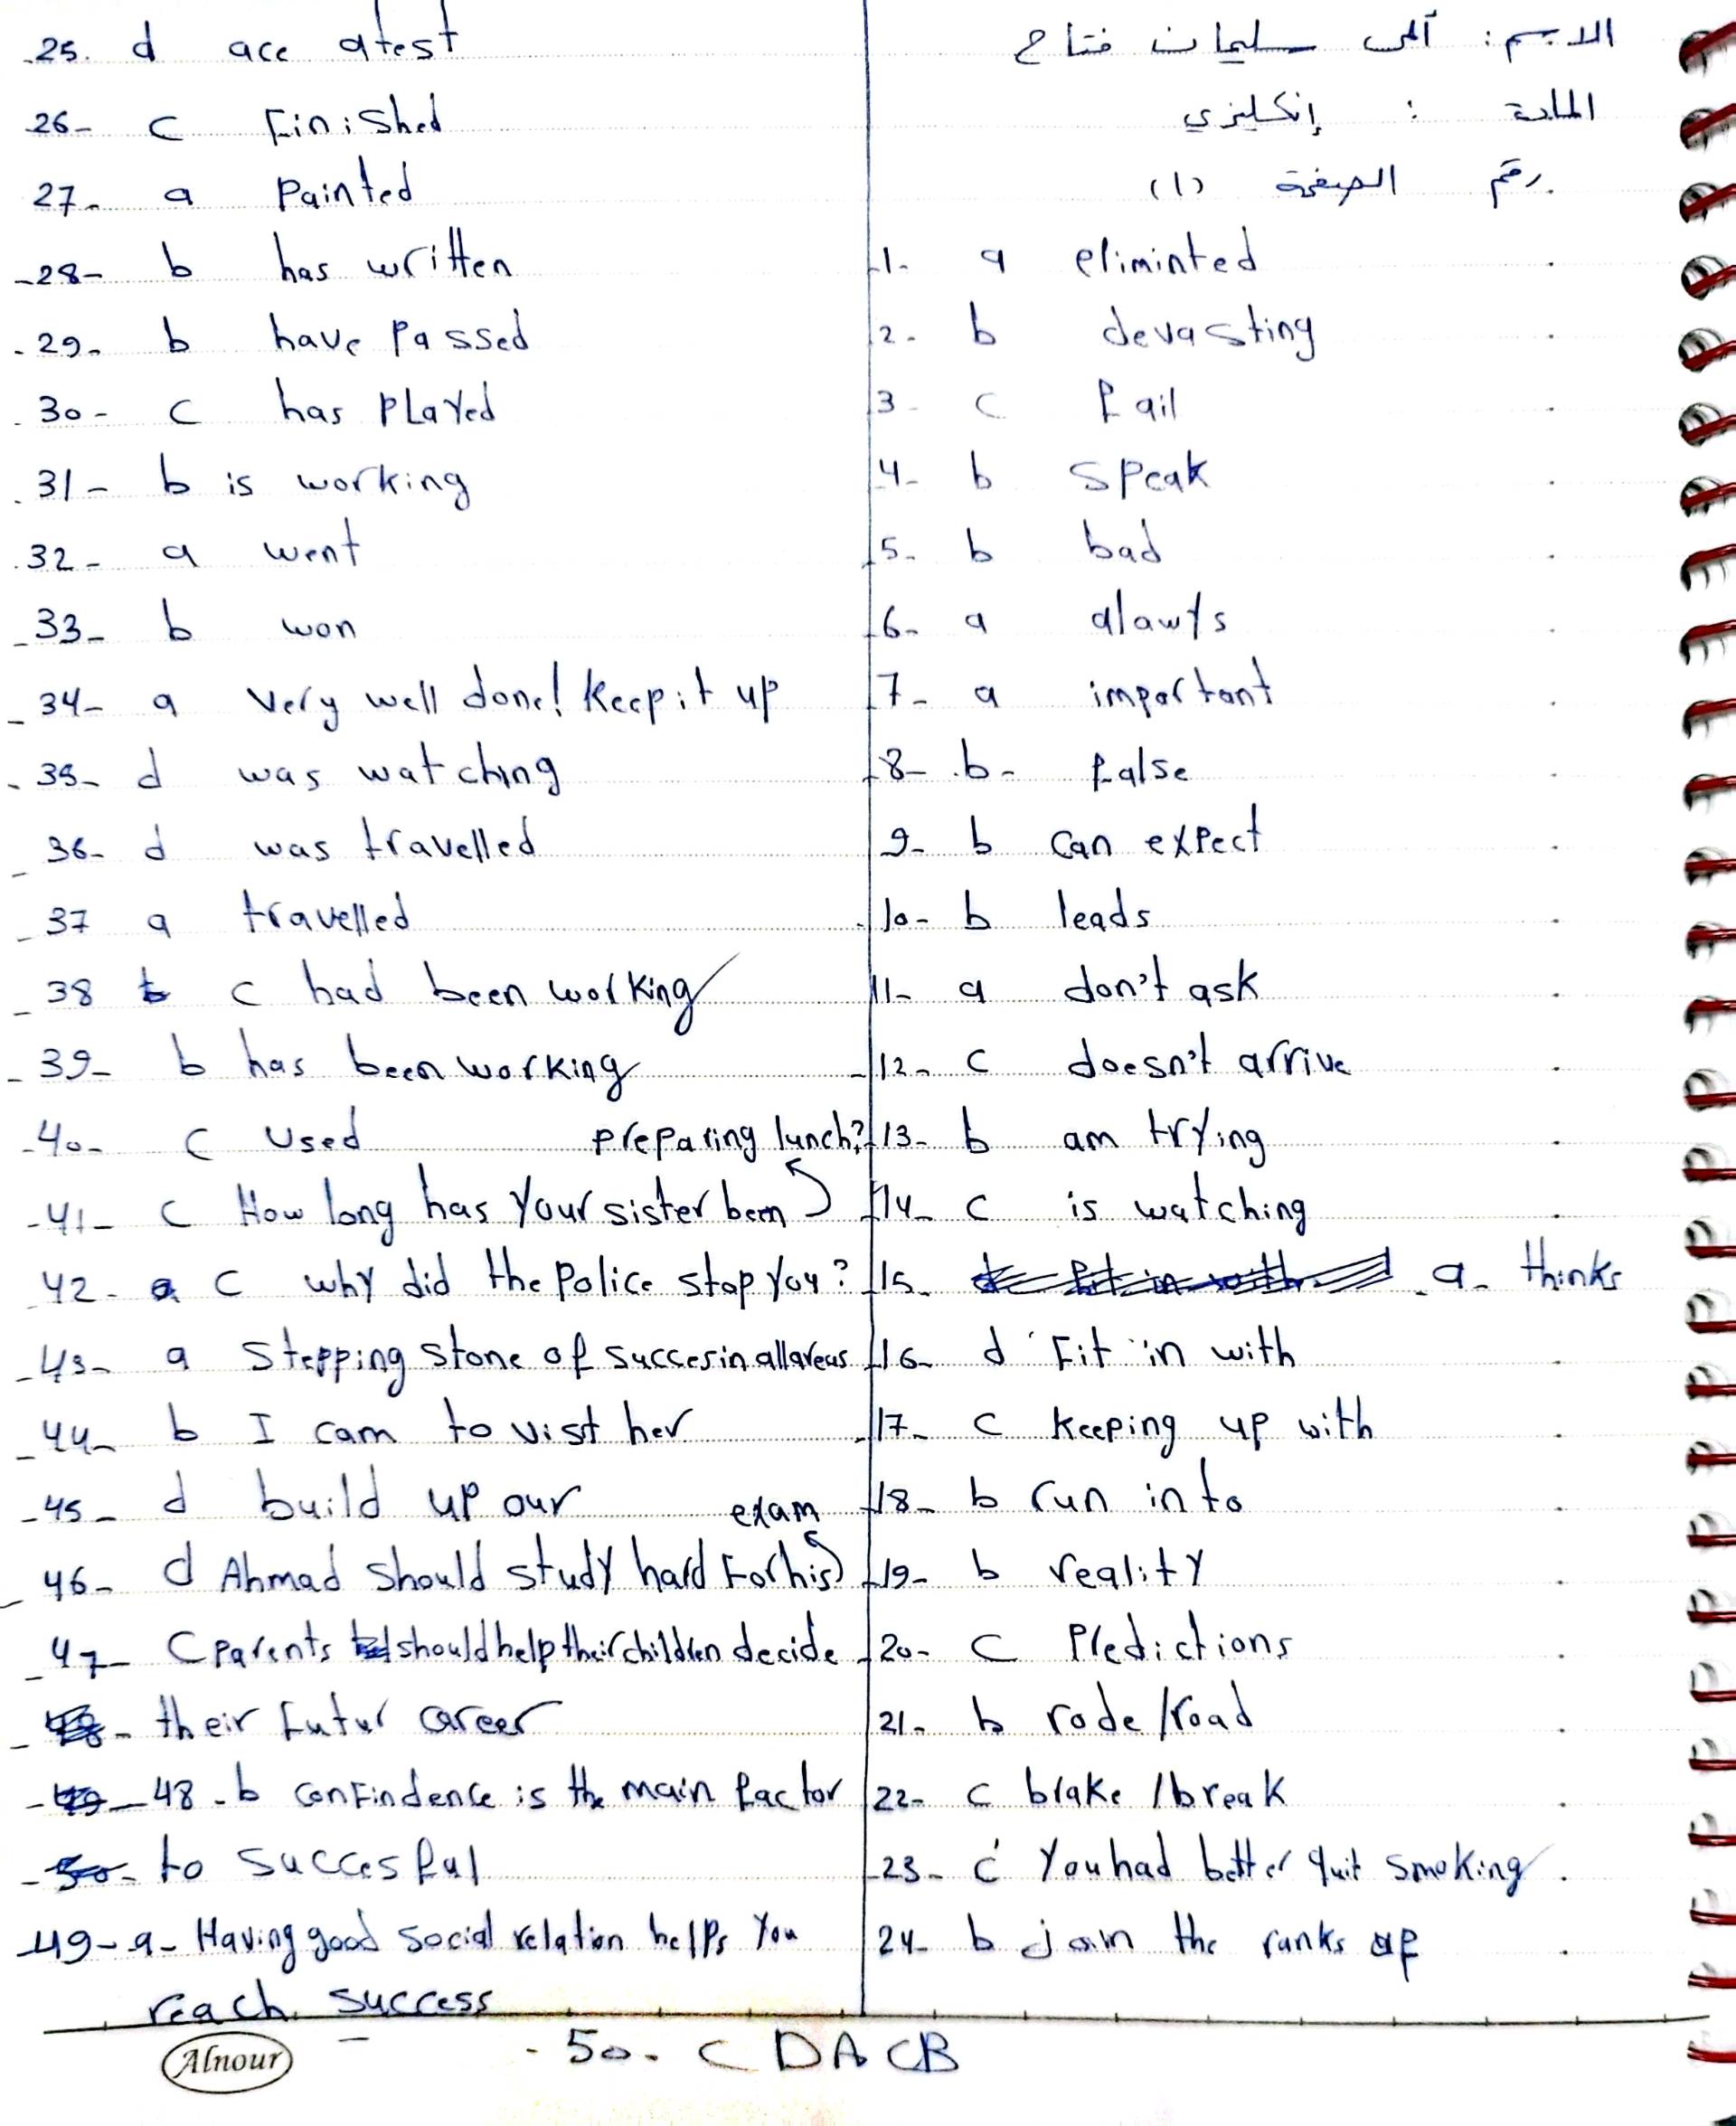 الاسم : آلاء سليمان فتاح
المادة : إنكليزي
رقم الصفحة (1)
1. a eliminted
2. b devasting
3- c fail
4- b speak
5- b bad
6- a alawys
7- a important
8- b- false
9- b can expect
10- b leads
11- a don't ask
12- c doesn't arrive
13- b am trying
14- c is watching
15. a- thinks
16- d Fit in with
17- c keeping up with
18- b run into
19- b reality
20- c Predictions
21- b rode/road
22- c brake/break
23- c You had better quit smoking
24- b join the ranks of
25. d ace a test
26- c Finished
27- a Painted
28- b has written
29- b have Passed
30- c has Played
31- b is working
32- a went
33- b won
34- a very well done! Keep it up
35- d was watching
36- d was travelled
37 a travelled
38 c had been working
39- b has been working
40- c used
41- c How long has your sister been preparing lunch?
42- c why did the Police stop you?
43- a Stepping stone of succes in all areas
44- b I cam to visit her
45- d build up our
46- d Ahmad should study hard For his exam
47- C Parents should help their children decide
their futur career
48- b confindence is the main factor
to succesful
49- a- Having good social relation helps You
reach success
Alnour
- 50. C D A C B